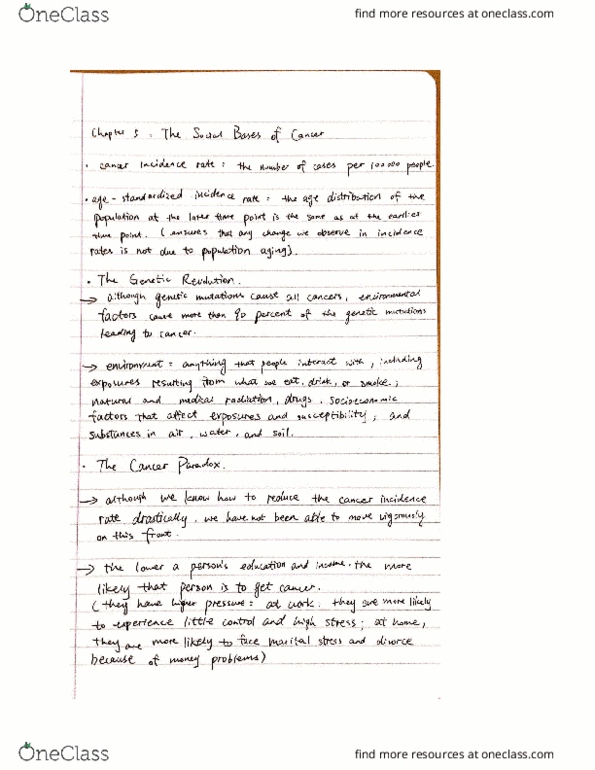 OneClass
find more resources at oneclass.com
Chapter 5 : The Social Bases of Cancer
• cancer incidence rate : the number of cases per 100 000 people
• age - standardized incidence rate : the age distribution of the
population at the later time point is the same as at the earlier
time point. ( ensures that any change we observe in incidence
rates is not due to population aging).
• The Genetic Revolution.
→ although genetic mutations cause all cancers, environmental
factors cause more than 90 percent of the genetic mutations
leading to cancer.
→ environment : anything that people interact with, including
exposures resulting from what we eat, drink, or smoke;
natural and medical radiation, drugs, socioeconomic
factors that affect exposures and susceptibility; and
substances in air, water, and soil.
• The Cancer Paradox.
→ although we know how to reduce the cancer incidence
rate drastically, we have not been able to move vigorously
on this front.
→ the lower a person's education and income, the more
likely that person is to get cancer.
( they have higher pressure : at work, they are more likely
to experience little control and high stress; at home,
they are more likely to face marital stress and divorce
because of money problems)
OneClass
find more resources at oneclass.com